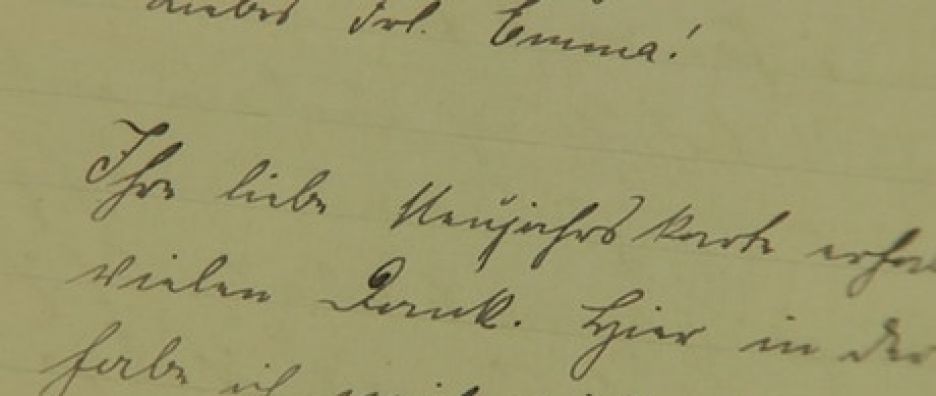 Liebes Frl. Emma!
Ihre liebe Neujahrskarte
vielen Dank. Hier in der
habe ich